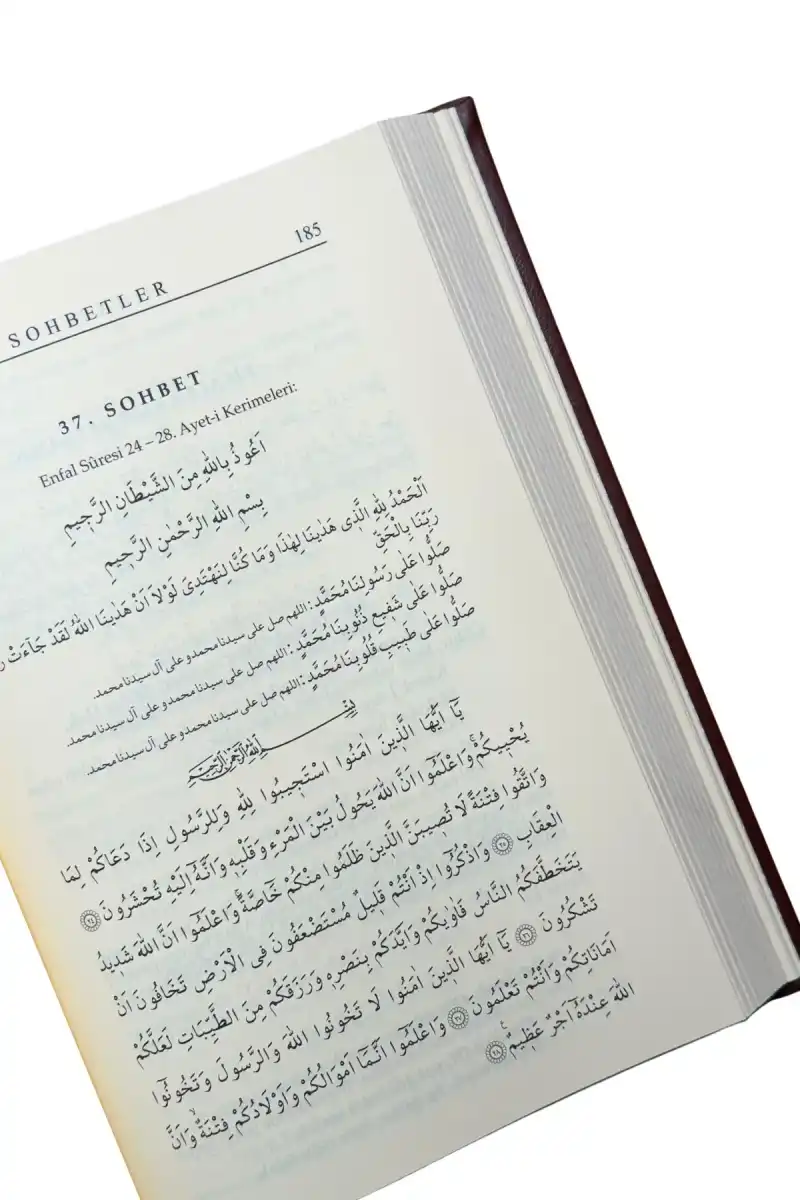 185
SOHBETLER
37. SOHBET
Enfal Sûresi 24 – 28. Ayet-i Kerimeleri:
اَعُوذُ بِاللّٰهِ مِنَ الشَّيْطَانِ الرَّجِيمِ
بِسْمِ اللّٰهِ الرَّحْمٰنِ الرَّحِيمِ
اَلْحَمْدُ لِلّٰهِ الَّذِى هَدٰينَا لِهٰذَا وَمَا كُنَّا لِنَهْتَدِىَ لَوْلَا اَنْ هَدٰينَا اللّٰهُ لَقَدْ جَآءَتْ
رَبِّنَا بِالْحَقِّ
صَلُّوا عَلٰى رَسُولِنَا مُحَمَّدٍ : اللهم صل على سيدنا محمد و على آل سيدنا محمد.
صَلُّوا عَلٰى شَفِيعِ ذُنُوبِنَا مُحَمَّدٍ : اللهم صل على سيدنا محمد و على آل سيدنا محمد.
صَلُّوا عَلٰى طَبِيبِ قُلُوبِنَا مُحَمَّدٍ : اللهم صل على سيدنا محمد و على آل سيدنا محمد.
بِسْمِ اللّٰهِ الرَّحْمٰنِ الرَّحِيمِ
يَآ اَيُّهَا الَّذِينَ اٰمَنُوا اسْتَجِيبُوا لِلّٰهِ وَلِلرَّسُولِ اِذَا دَعَاكُمْ لِمَا
يُحْيِيكُمْۚ وَاعْلَمُوا اَنَّ اللّٰهَ يَحُولُ بَيْنَ الْمَرْءِ وَقَلْبِهِ وَاَنَّهُ اِلَيْهِ تُحْشَرُونَ ﴿٢٤﴾
وَاتَّقُوا فِتْنَةً لَا تُصِيبَنَّ الَّذِينَ ظَلَمُوا مِنْكُمْ خَاصَّةًۚ وَاعْلَمُوا اَنَّ اللّٰهَ شَدِيدُ
الْعِقَابِ ﴿٢٥﴾ وَاذْكُرُوا اِذْ اَنْتُمْ قَلِيلٌ مُسْتَضْعَفُونَ فِى الْاَرْضِ تَخَافُونَ اَنْ
يَتَخَطَّفَكُمُ النَّاسُ فَاٰوٰيكُمْ وَاَيَّدَكُمْ بِنَصْرِهِ وَرَزَقَكُمْ مِنَ الطَّيِّبَاتِ لَعَلَّكُمْ
تَشْكُرُونَ ﴿٢٦﴾ يَآ اَيُّهَا الَّذِينَ اٰمَنُوا لَا تَخُونُوا اللّٰهَ وَالرَّسُولَ وَتَخُونُوٓا
اَمَانَاتِكُمْ وَاَنْتُمْ تَعْلَمُونَ ﴿٢٧﴾ وَاعْلَمُوٓا اَنَّمَآ اَمْوَالُكُمْ وَاَوْلَادُكُمْ فِتْنَةٌۙ وَاَنَّ
اللّٰهَ عِنْدَهُٓ اَجْرٌ عَظِيمٌ ﴿٢٨﴾